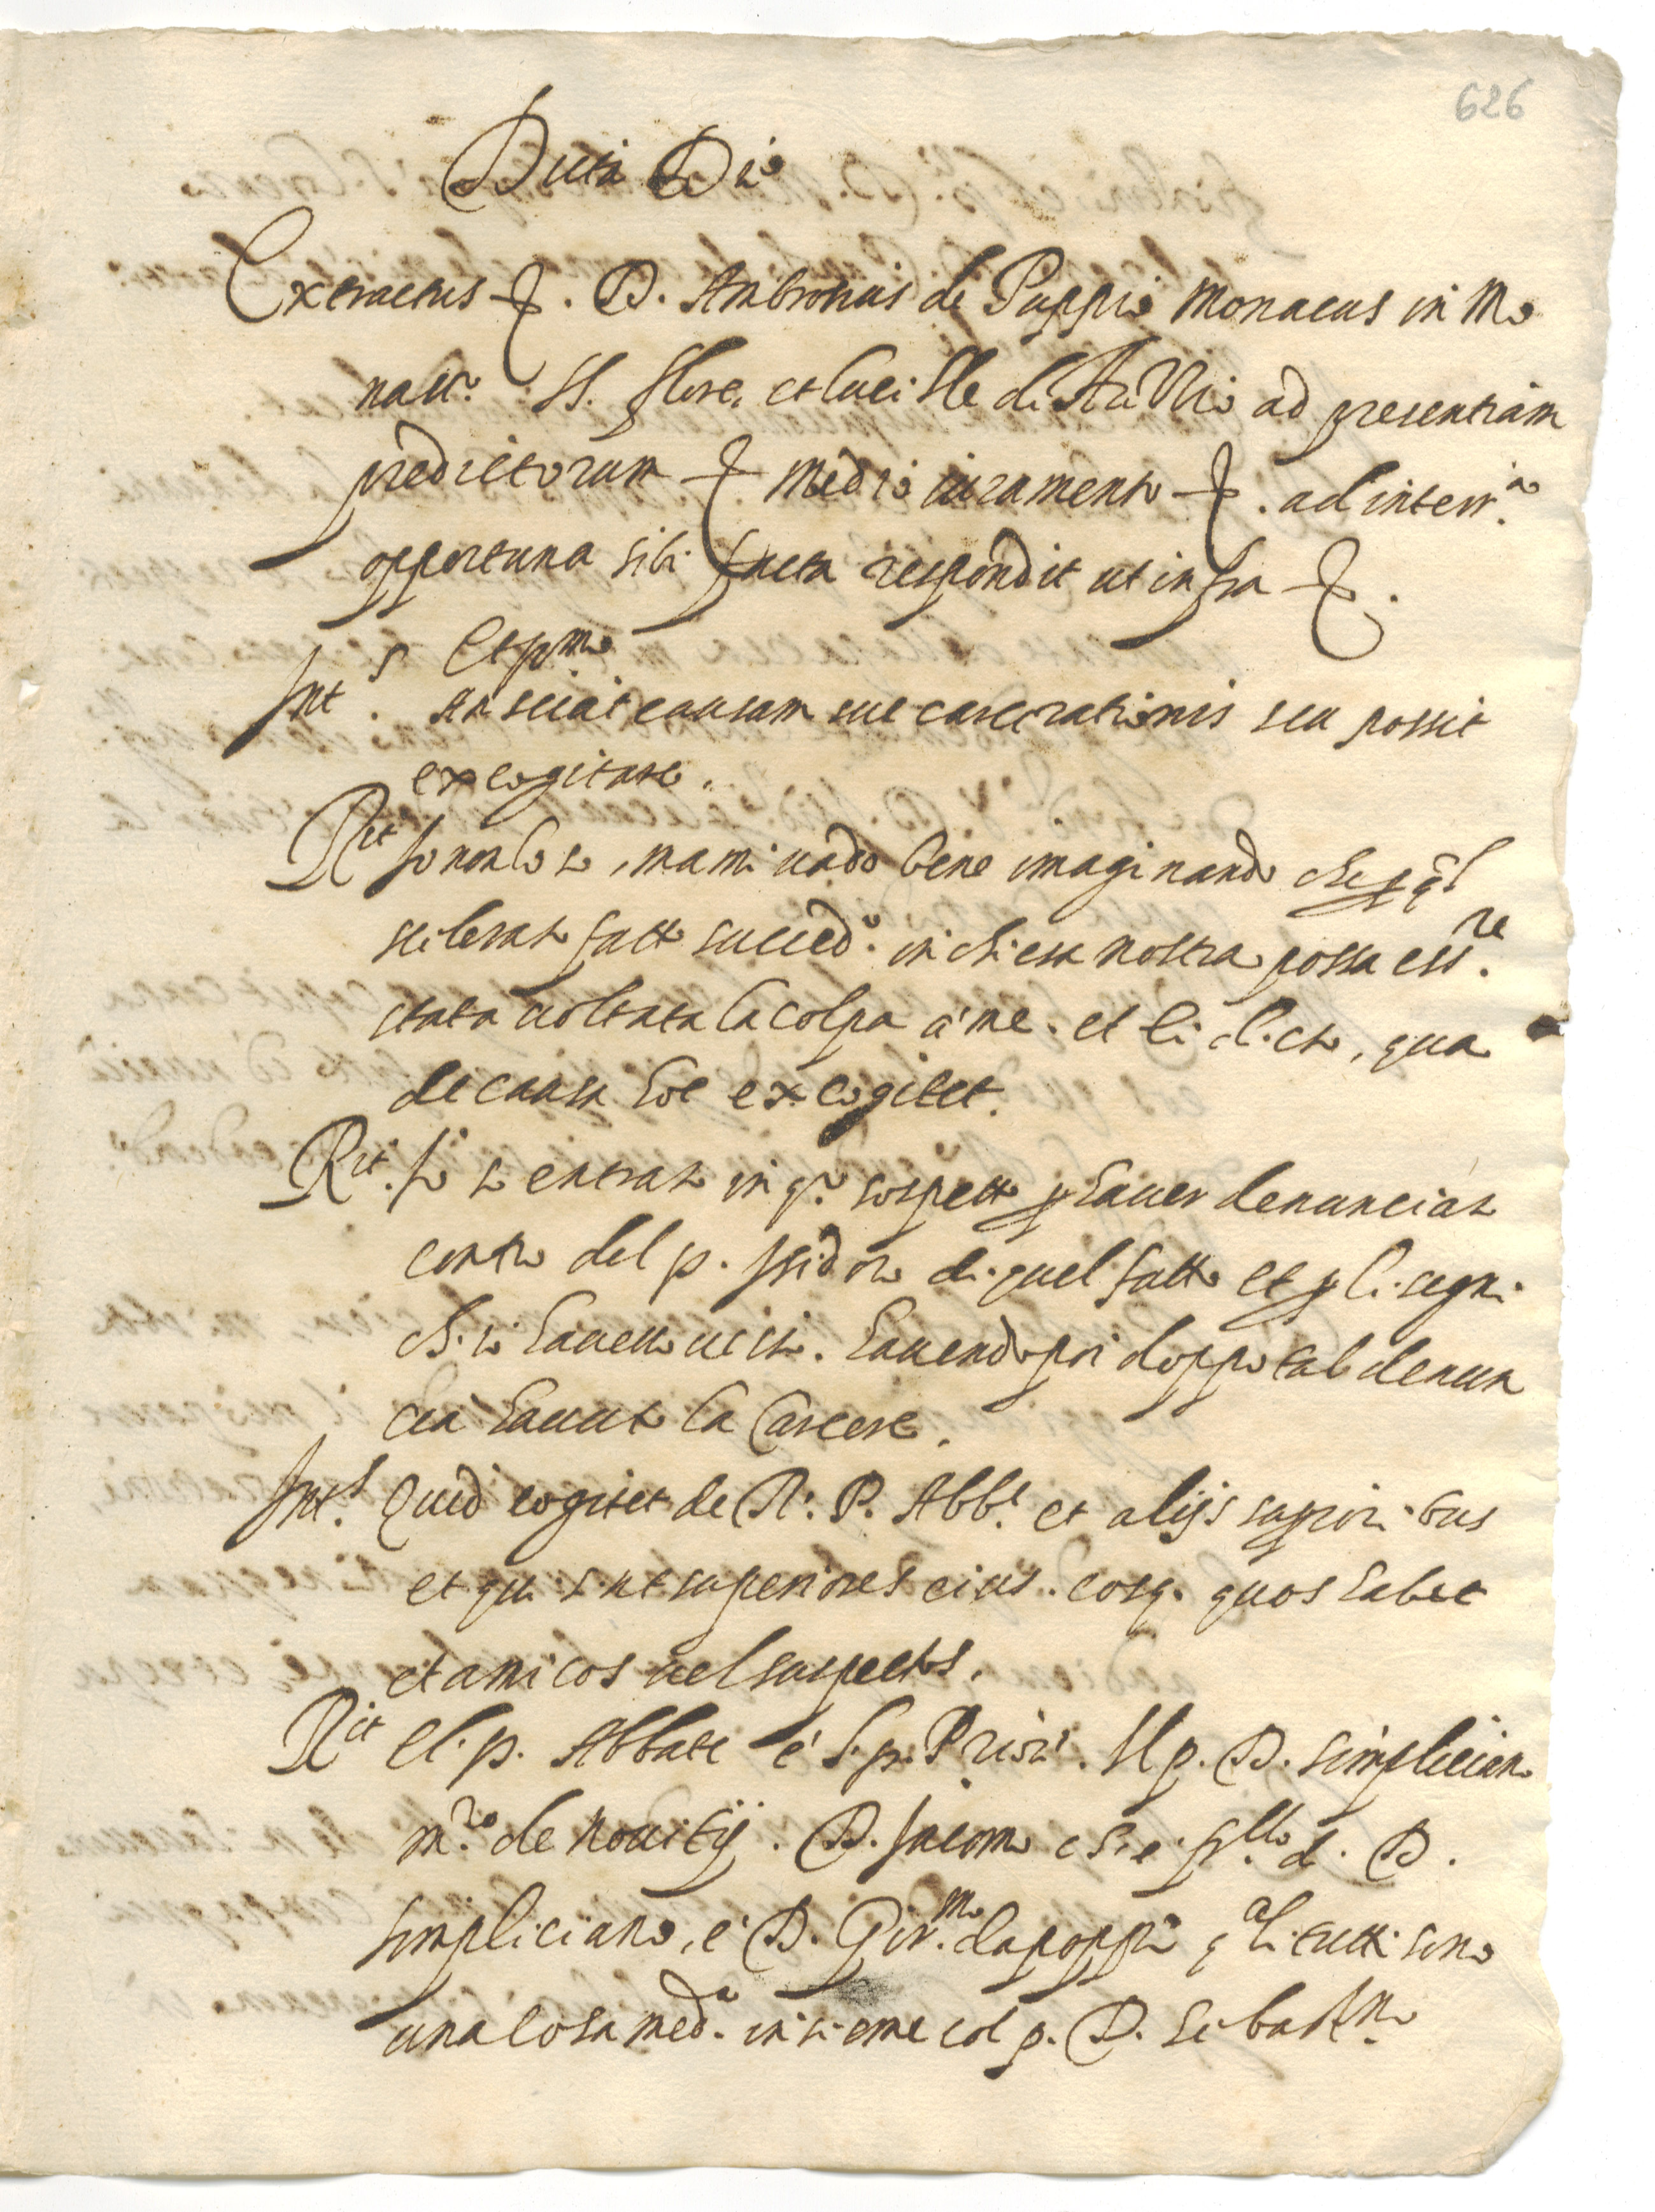 626
Dicta Die
Extractus etc. D. Ambrosius de Puppio monacus in Mo
nastº. SS. Flore, et lucille de Aretio ad presentiam
predictorum etc medio iuramento etc. ad interr.ª
opportuna sibi facta respondit ut infra etc.
Et pmo
Int.s An sciat causam sue carcerationis seu possit
excogitare.
Rit Io non lo so, ma mi vado bene imaginando che p ql
scilerato fatto succedº. in chiesa nostra possa ess.re
stata voltata la colpa a' me. et li dicto, qua
de causa hoc excogitet.
Rit. Io so entrato in qº. sospetto p haver denunciato
contro del p. Isidoro di quel fatto et p li segni
ch'io havevo visto. havendo poi doppo tal denun
cia havuto la Carcere.
Int.s Quid cogitet de R: P. Abb.e et alijs superioribus
et qui sunt superiores eius. eosq. quos habet
et amicos vel suspectos.
Rit El p. Abbate è l. p. Priore. Il p. D. Simpliciano
m.ro de Novitij. D. Jacomo che è fr.llo d. D.
Simpliciano, e' D. Gir.mo da poppi q.ali tutti sono
una cosa med.a insieme col p. D. Sebastno